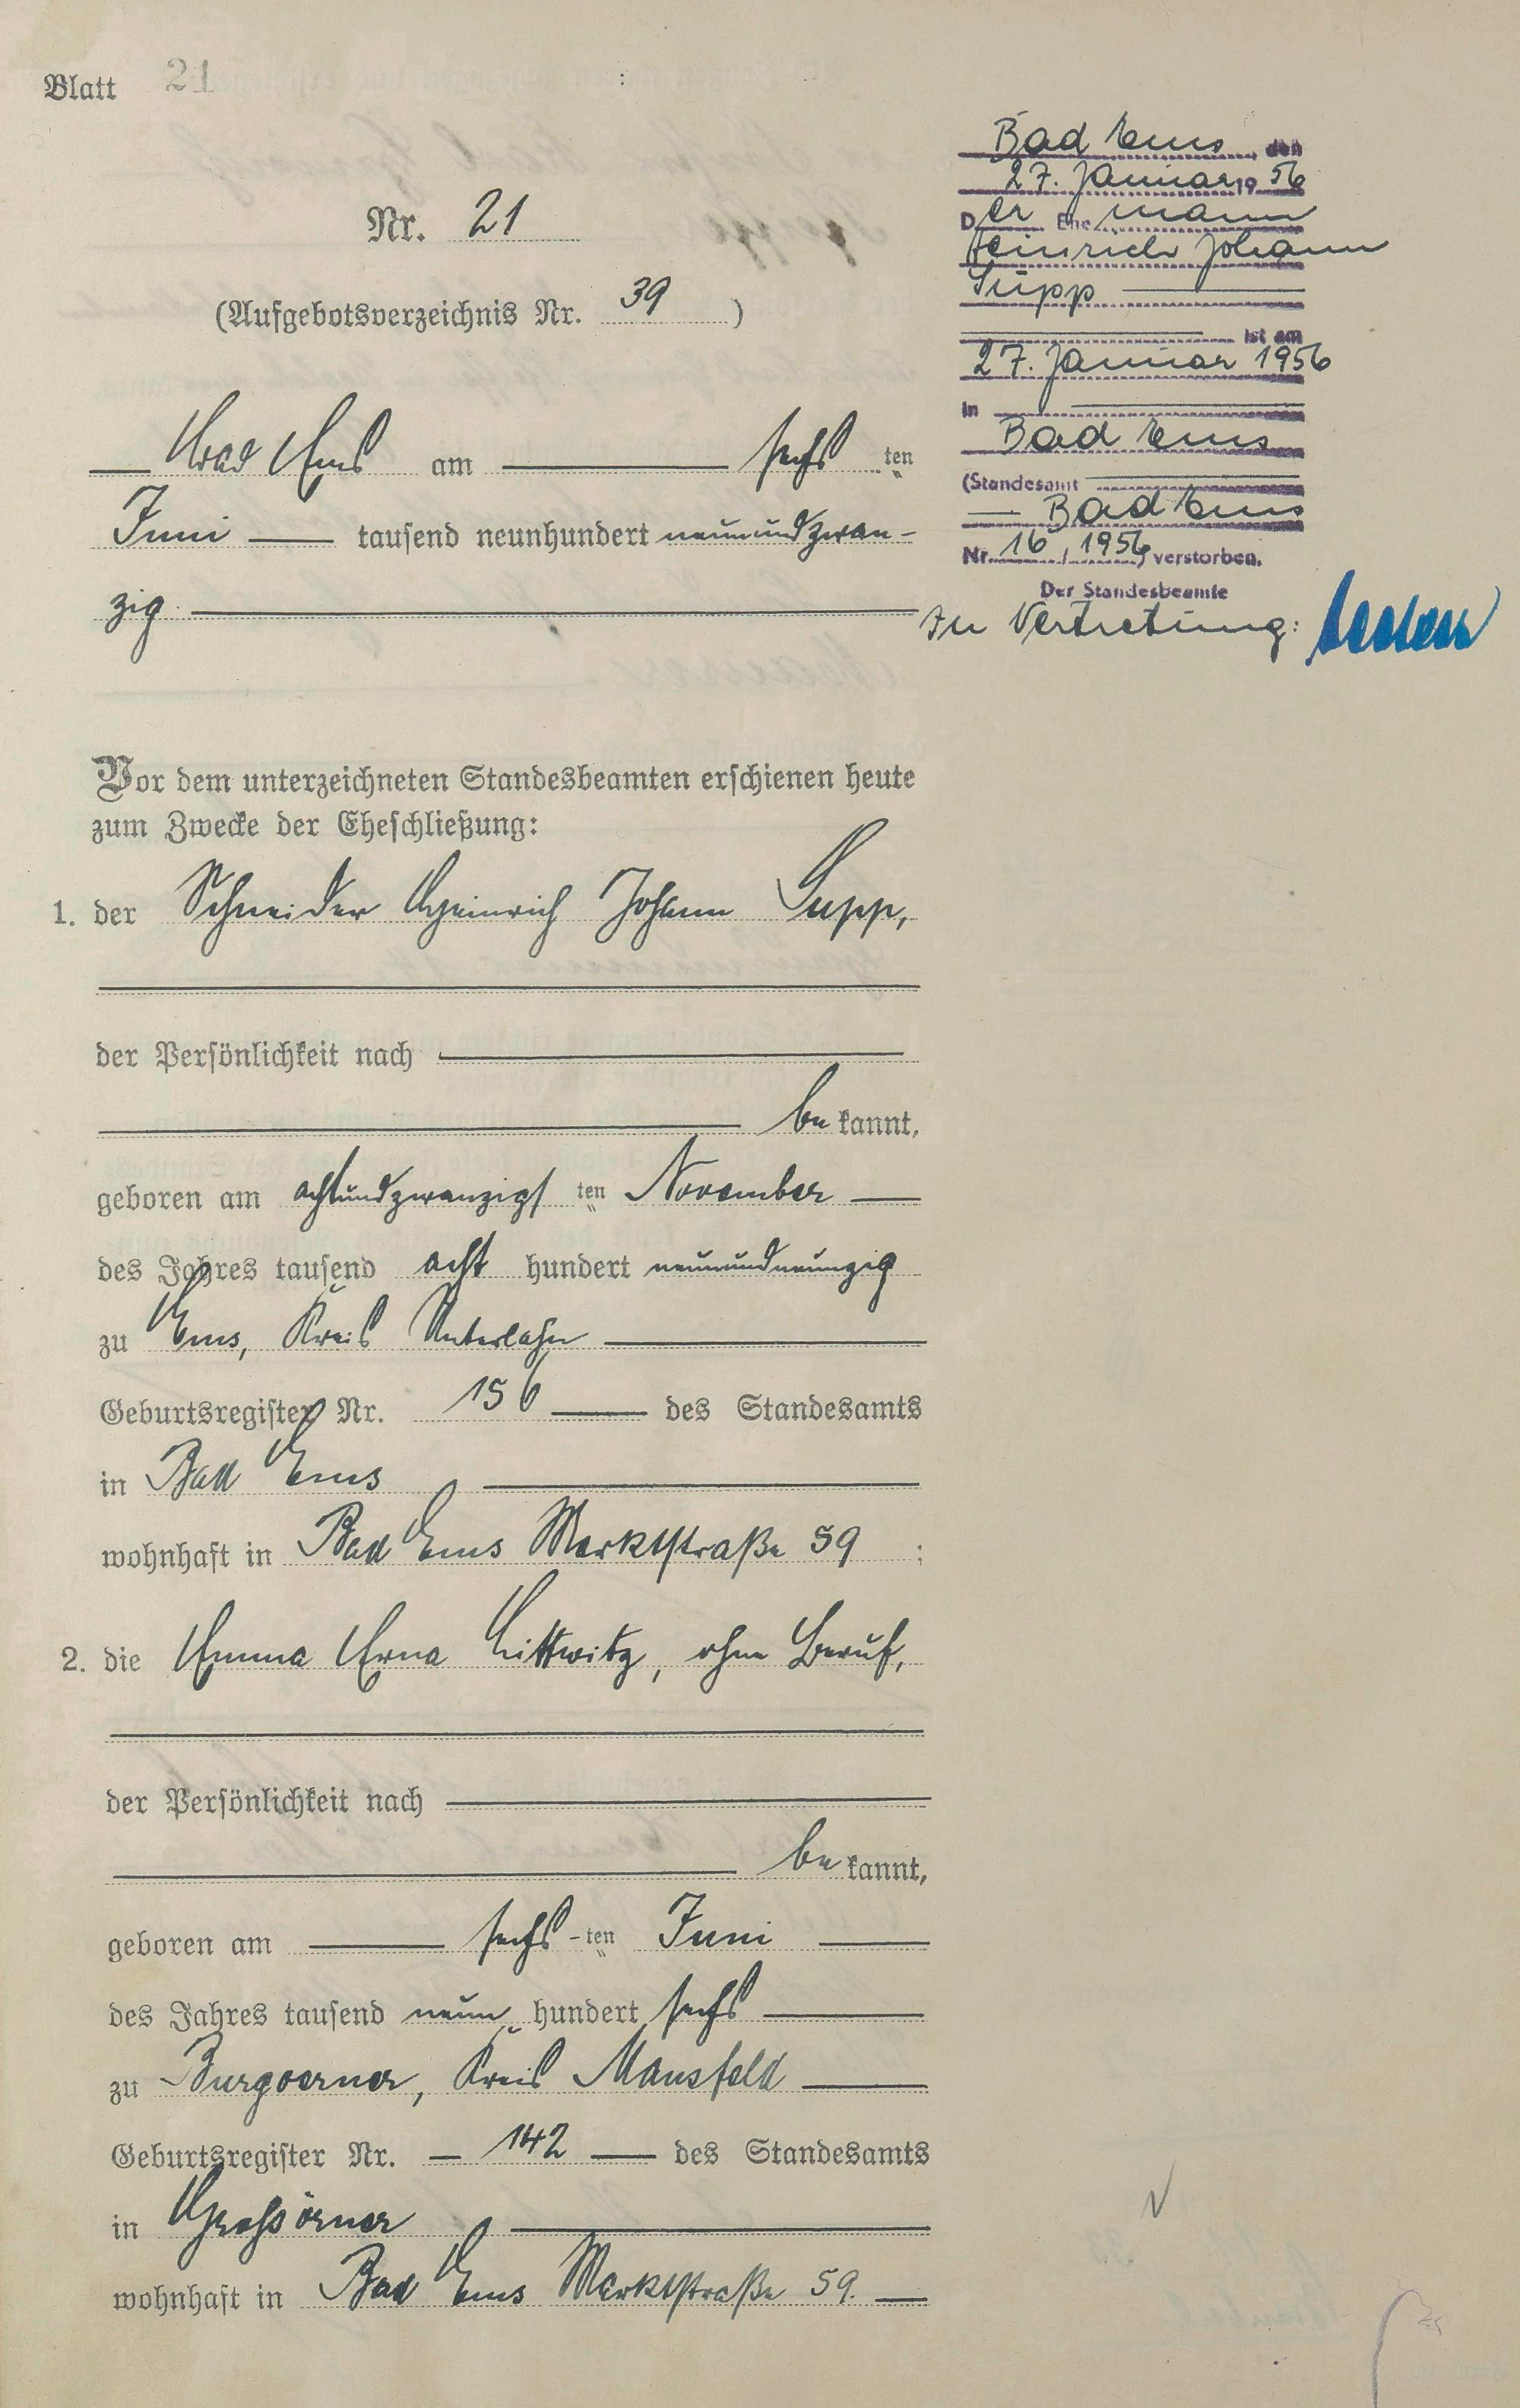 Blatt 21
Nr. 21
(Aufgebotsverzeichnis Nr. 39 )
Bad Ems am sechs ten
Juni tausend neunhundert neunundzwan-
zig
Vor dem unterzeichneten Standesbeamten erschienen heute
zum Zwecke der Eheschließung:
1. der Schneider Heinrich Johann Supp,
der Persönlichkeit nach
be kannt,
geboren am achtundzwanzigs ten November
des Jahres tausend acht hundert neunundneunzig
zu Ems, Kreis Unterlahn
Geburtsregister Nr. 156 des Standesamts
in Bad Ems
wohnhaft in Bad Ems Marktstraße 59 ;
2. die Emma Erna Littwitz, ohne Beruf,
der Persönlichkeit nach
be kannt,
geboren am sechs-ten Juni
des Jahres tausend neun hundert sechs
zu Burgoerner, Kreis Mansfeld
Geburtsregister Nr. 142 des Standesamts
in Grossörner
wohnhaft in Bad Ems Marktstraße 59.
Bad Ems, den
27. Januar 1956
Der Ehemann
Heinrich Johann
Supp
ist am
27. Januar 1956
in
Bad Ems
(Standesamt
Bad Ems
Nr. 16/1956) verstorben.
Der Standesbeamte
In Vertretung: